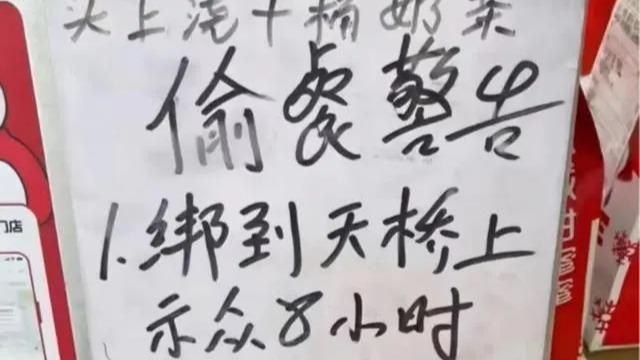 头上浇十桶奶茶
偷餐警告
1.绑到天桥上
示众8小时
门店